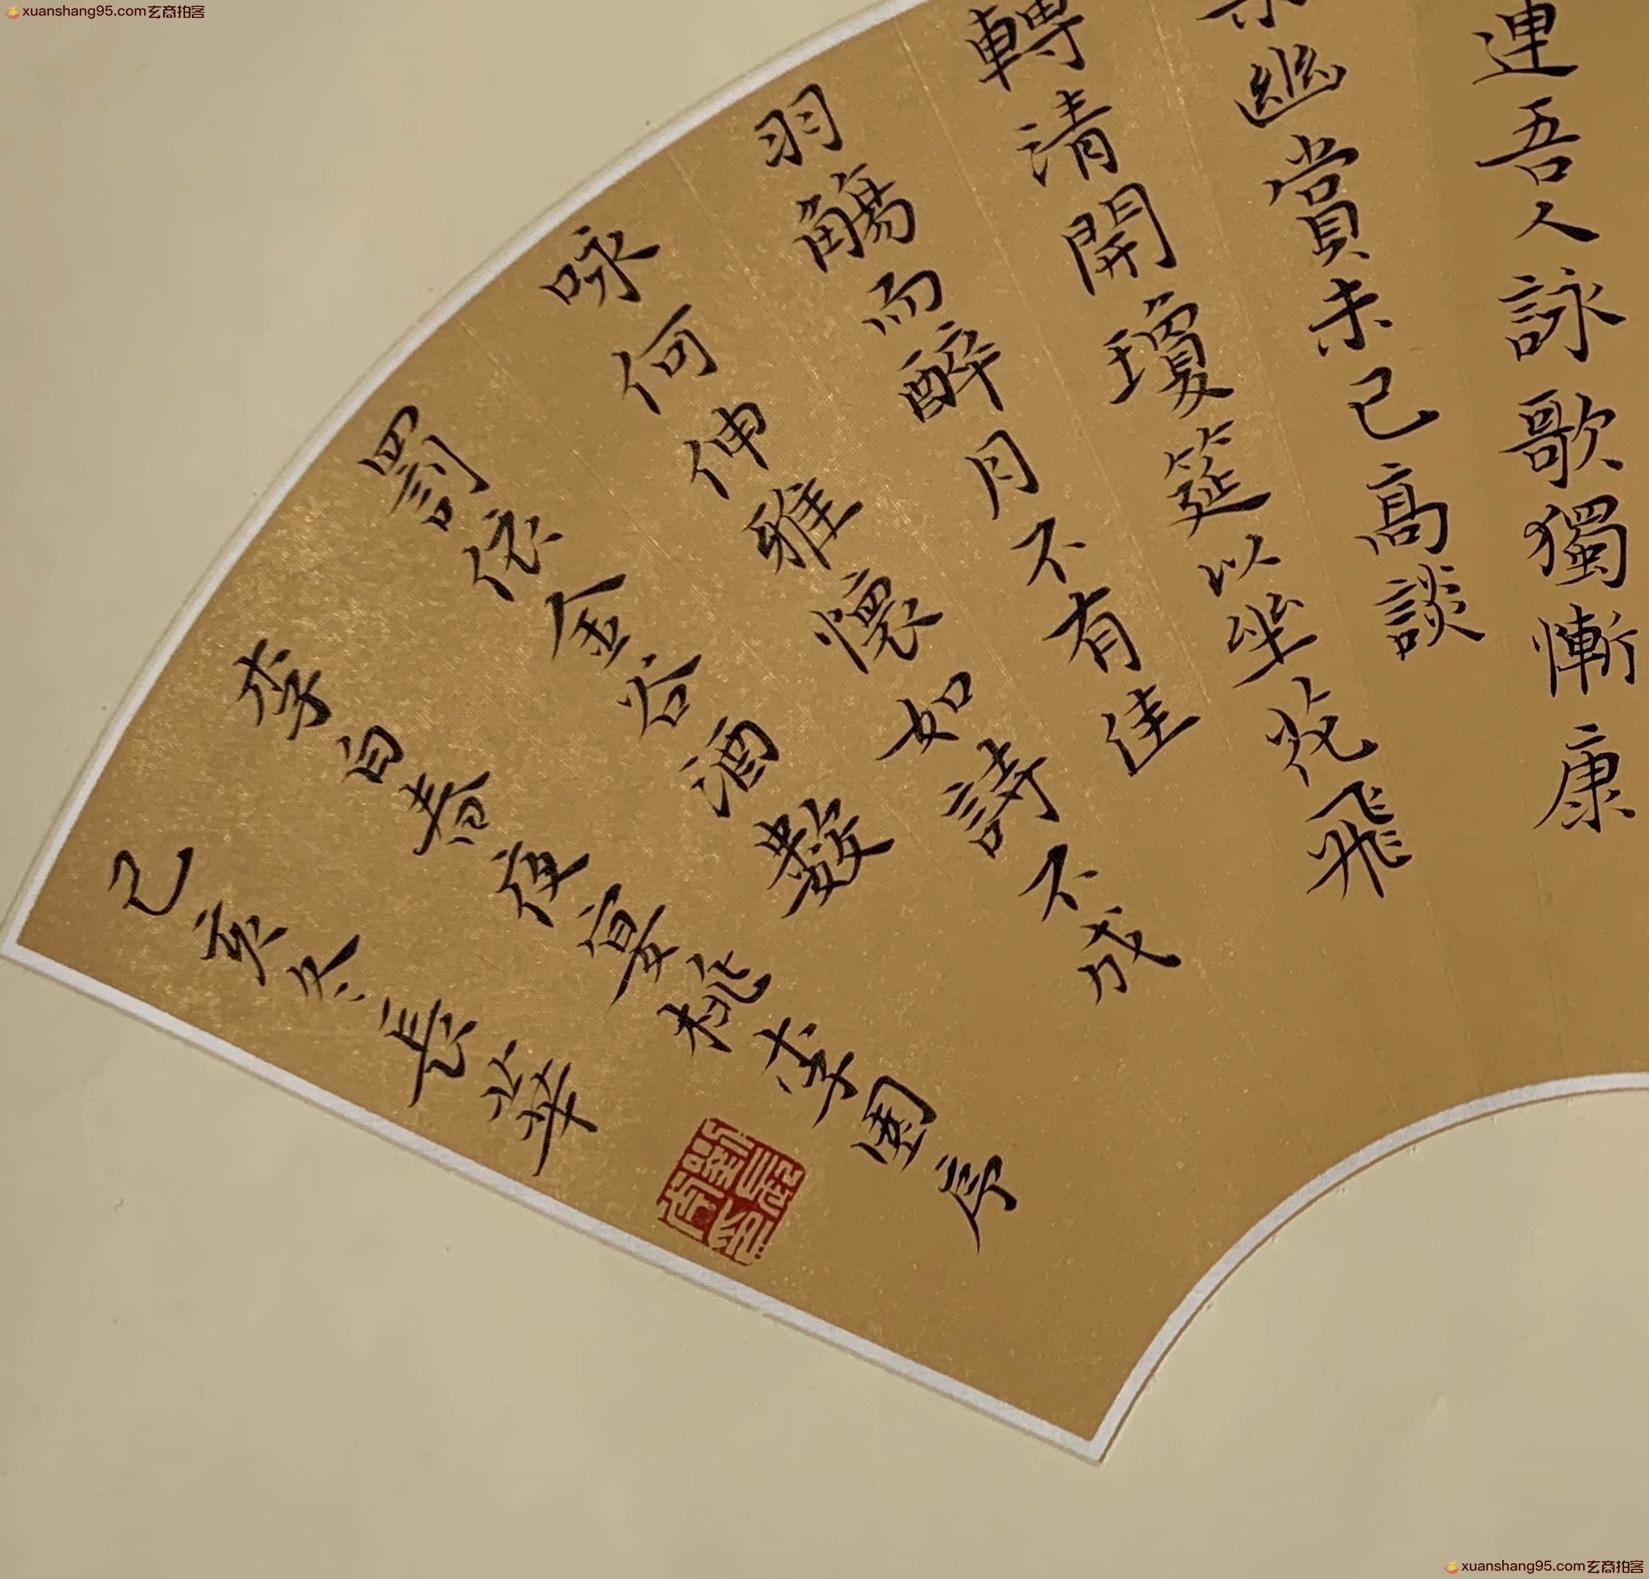 連吾人詠歌獨慚康
幽賞未已高談
轉清開瓊筵以坐花飛
羽觴而醉月不有佳
咏何伸雅懷如詩不成
罰依金谷酒數
李白春夜宴桃李園序
己亥冬長華
xuanshang95.com玄商拍客
xuanshang95.com玄商拍客